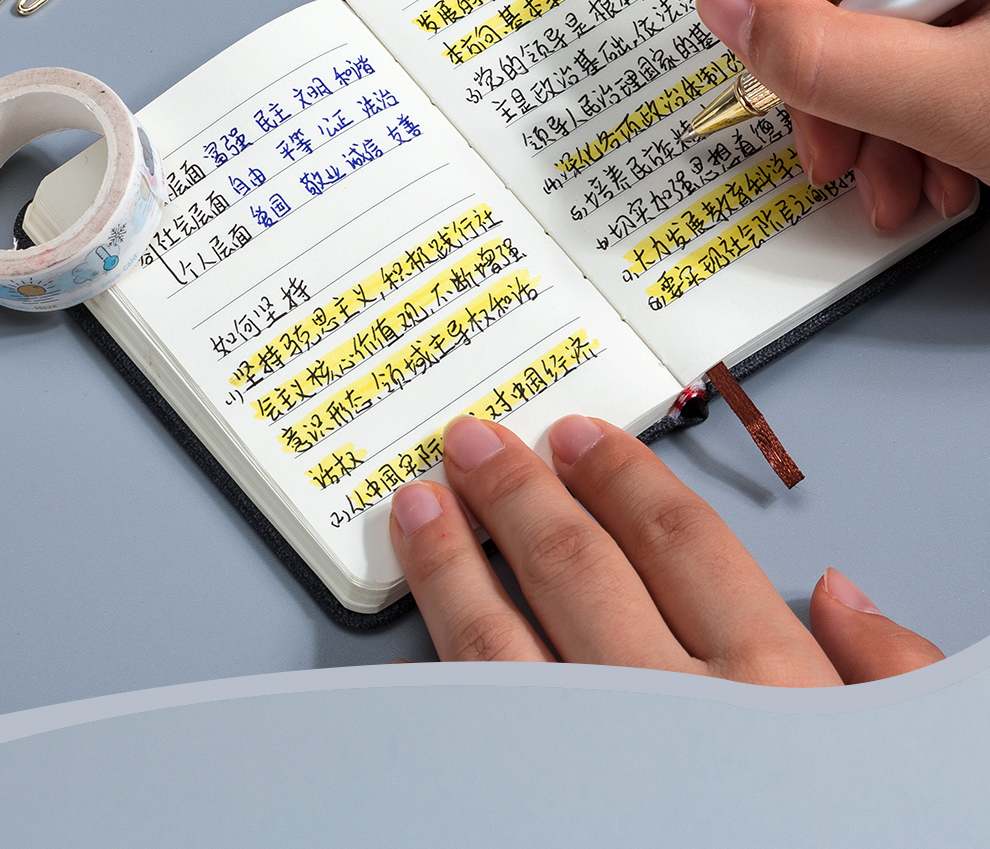 层面 富强 民主 文明 和谐
社会层面 自由 平等 公正 法治
个人层面 爱国 敬业 诚信 友善
如何坚持
(1) 坚持马克思主义,积极践行社
会主义核心价值观,不断增强
意识形态领域主导权和话
语权
(2) 从中国实际 对中国经济
发展的
本方向.基本
(3) 党的领导是根
主是政治基础,依法
领导人民治理国家的基
(4) 深化各项政治体制改
(5) 培养民族精
(6) 切实加强思想道德
大力发展教育科学
要实现社会阶层之间的